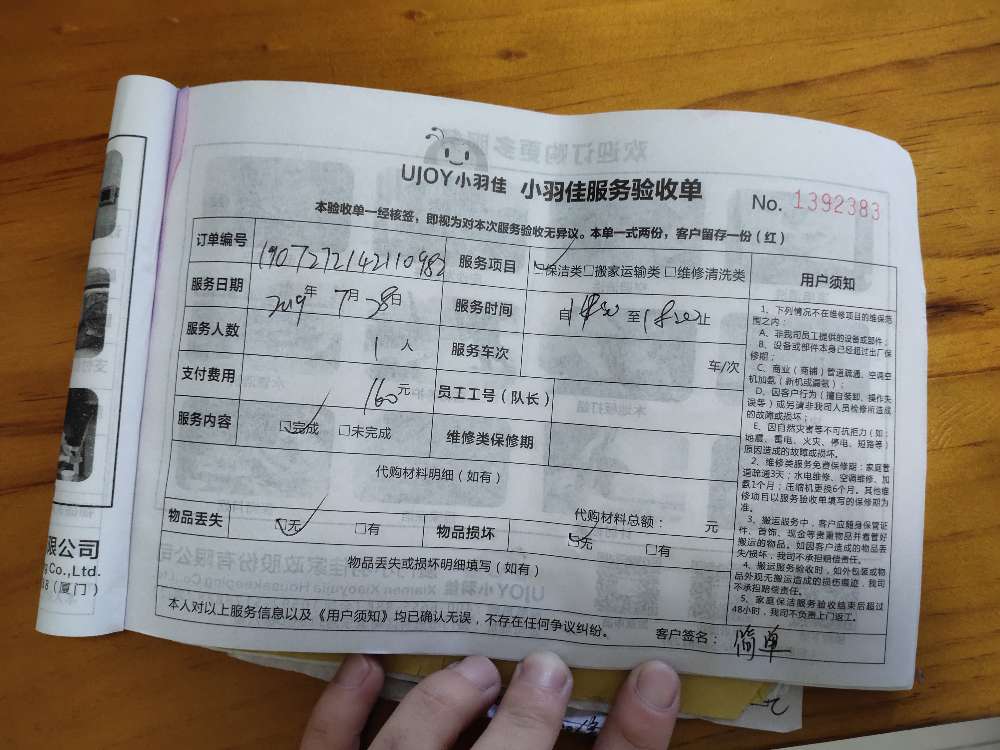 UJOY小羽佳 小羽佳服务验收单
No. 1392383
本验收单一经核签，即视为对本次服务验收无异议。本单一式两份，客户留存一份（红）
订单编号 服务项目 保洁类 □搬家运输类 □维修清洗类
服务日期 2019年 7月 28日 服务时间 自 至 止
服务人数 1 人 服务车次 车/次
支付费用 160元 员工工号（队长）
服务内容 完成 □未完成 维修类保修期
代购材料明细（如有）
代购材料总额： 元
物品丢失 无 □有 物品损坏 无 □有
物品丢失或损坏明细填写（如有）
本人对以上服务信息以及《用户须知》均已确认无误，不存在任何争议纠纷。
客户签名： 简单
用户须知
1、下列情况不在维修项目的维保范
围之内：
A、非我司员工提供的设备或部件；
B、设备或部件本身已经超过出厂保
修期；
C、商业（商铺）管道疏通、空调空
机加氨（新机或漏氨）；
D、因客户行为（擅自装卸、操作失
误等）或另请非我司人员检修所造成
的故障或损坏；
E、因自然灾害等不可抗拒力（如：
地震、雷电、火灾、停电、短路等）
原因造成的故障或损坏。
2、维修类服务免费保修期：家庭管
道疏通3天；水电维修、空调维修、加
氨1个月；压缩机更换6个月。其他维
修项目以服务验收单填写的保修期为
准。
3、搬运服务中，客户应随身保管证
件、首饰、现金等贵重物品并看管好
搬运的物品。如因客户造成的物品丢
失/损坏，我司不承担赔偿责任。
4、搬运服务验收时，如外包装或物
品外观无搬运造成的损伤痕迹，我司
不承担赔偿责任。
5、家庭保洁服务验收结束后超过
48小时，我司不负责上门返工。
限公司
Co.,Ltd.
（厦门）